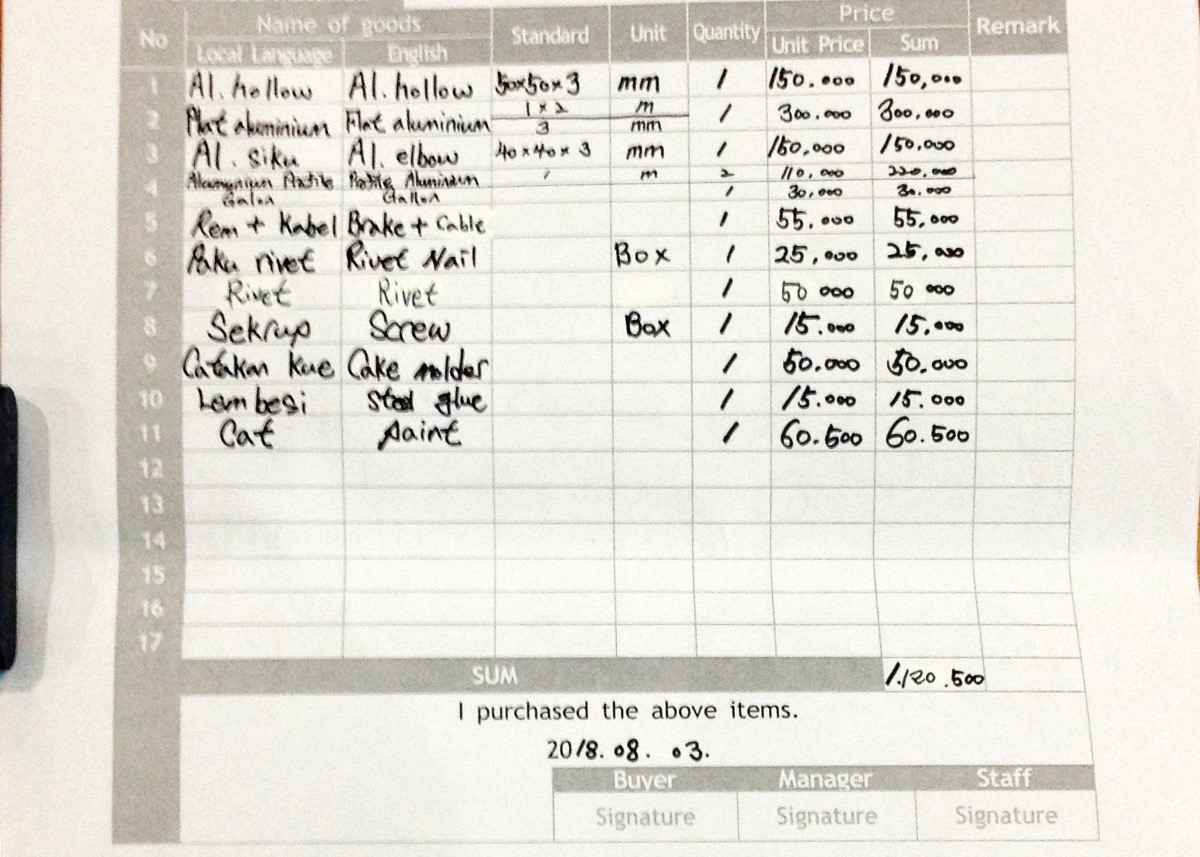 Name of goods Price
No Standard Unit Quantity Remark
Local Language English Unit Price Sum
1 Al. hollow Al. hollow 50x50x3 mm 1 150.000 150,000
2 Plat aluminium Flat aluminium 1 x 2 m 1 300.000 300,000
3 mm
3 Al. siku Al. elbow 40x40x3 mm 1 150,000 150,000
4 Profile Aluminium m 2 110,000 220,000
Galon Gallon 1 30,000 30.000
5 Rem + Kabel Brake + Cable 1 55.000 55,000
6 Paku rivet Rivet Nail Box 1 25,000 25,000
7 Rivet Rivet 1 50 000 50 000
8 Sekrup Screw Box 1 15.000 15.000
9 Catakan kue Cake molder 1 50.000 50.000
10 Lem besi steel glue 1 15.000 15.000
11 Cat paint 1 60.500 60.500
12
13
14
15
16
17
SUM 1.120.500
I purchased the above items.
2018. 08. 03.
Buyer Manager Staff
Signature Signature Signature